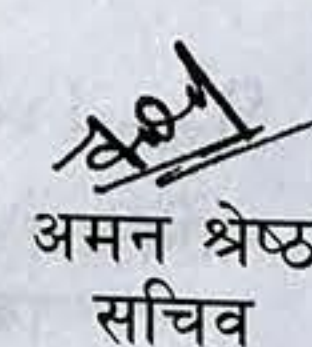 अमन श्रेष्ठ
सचिव